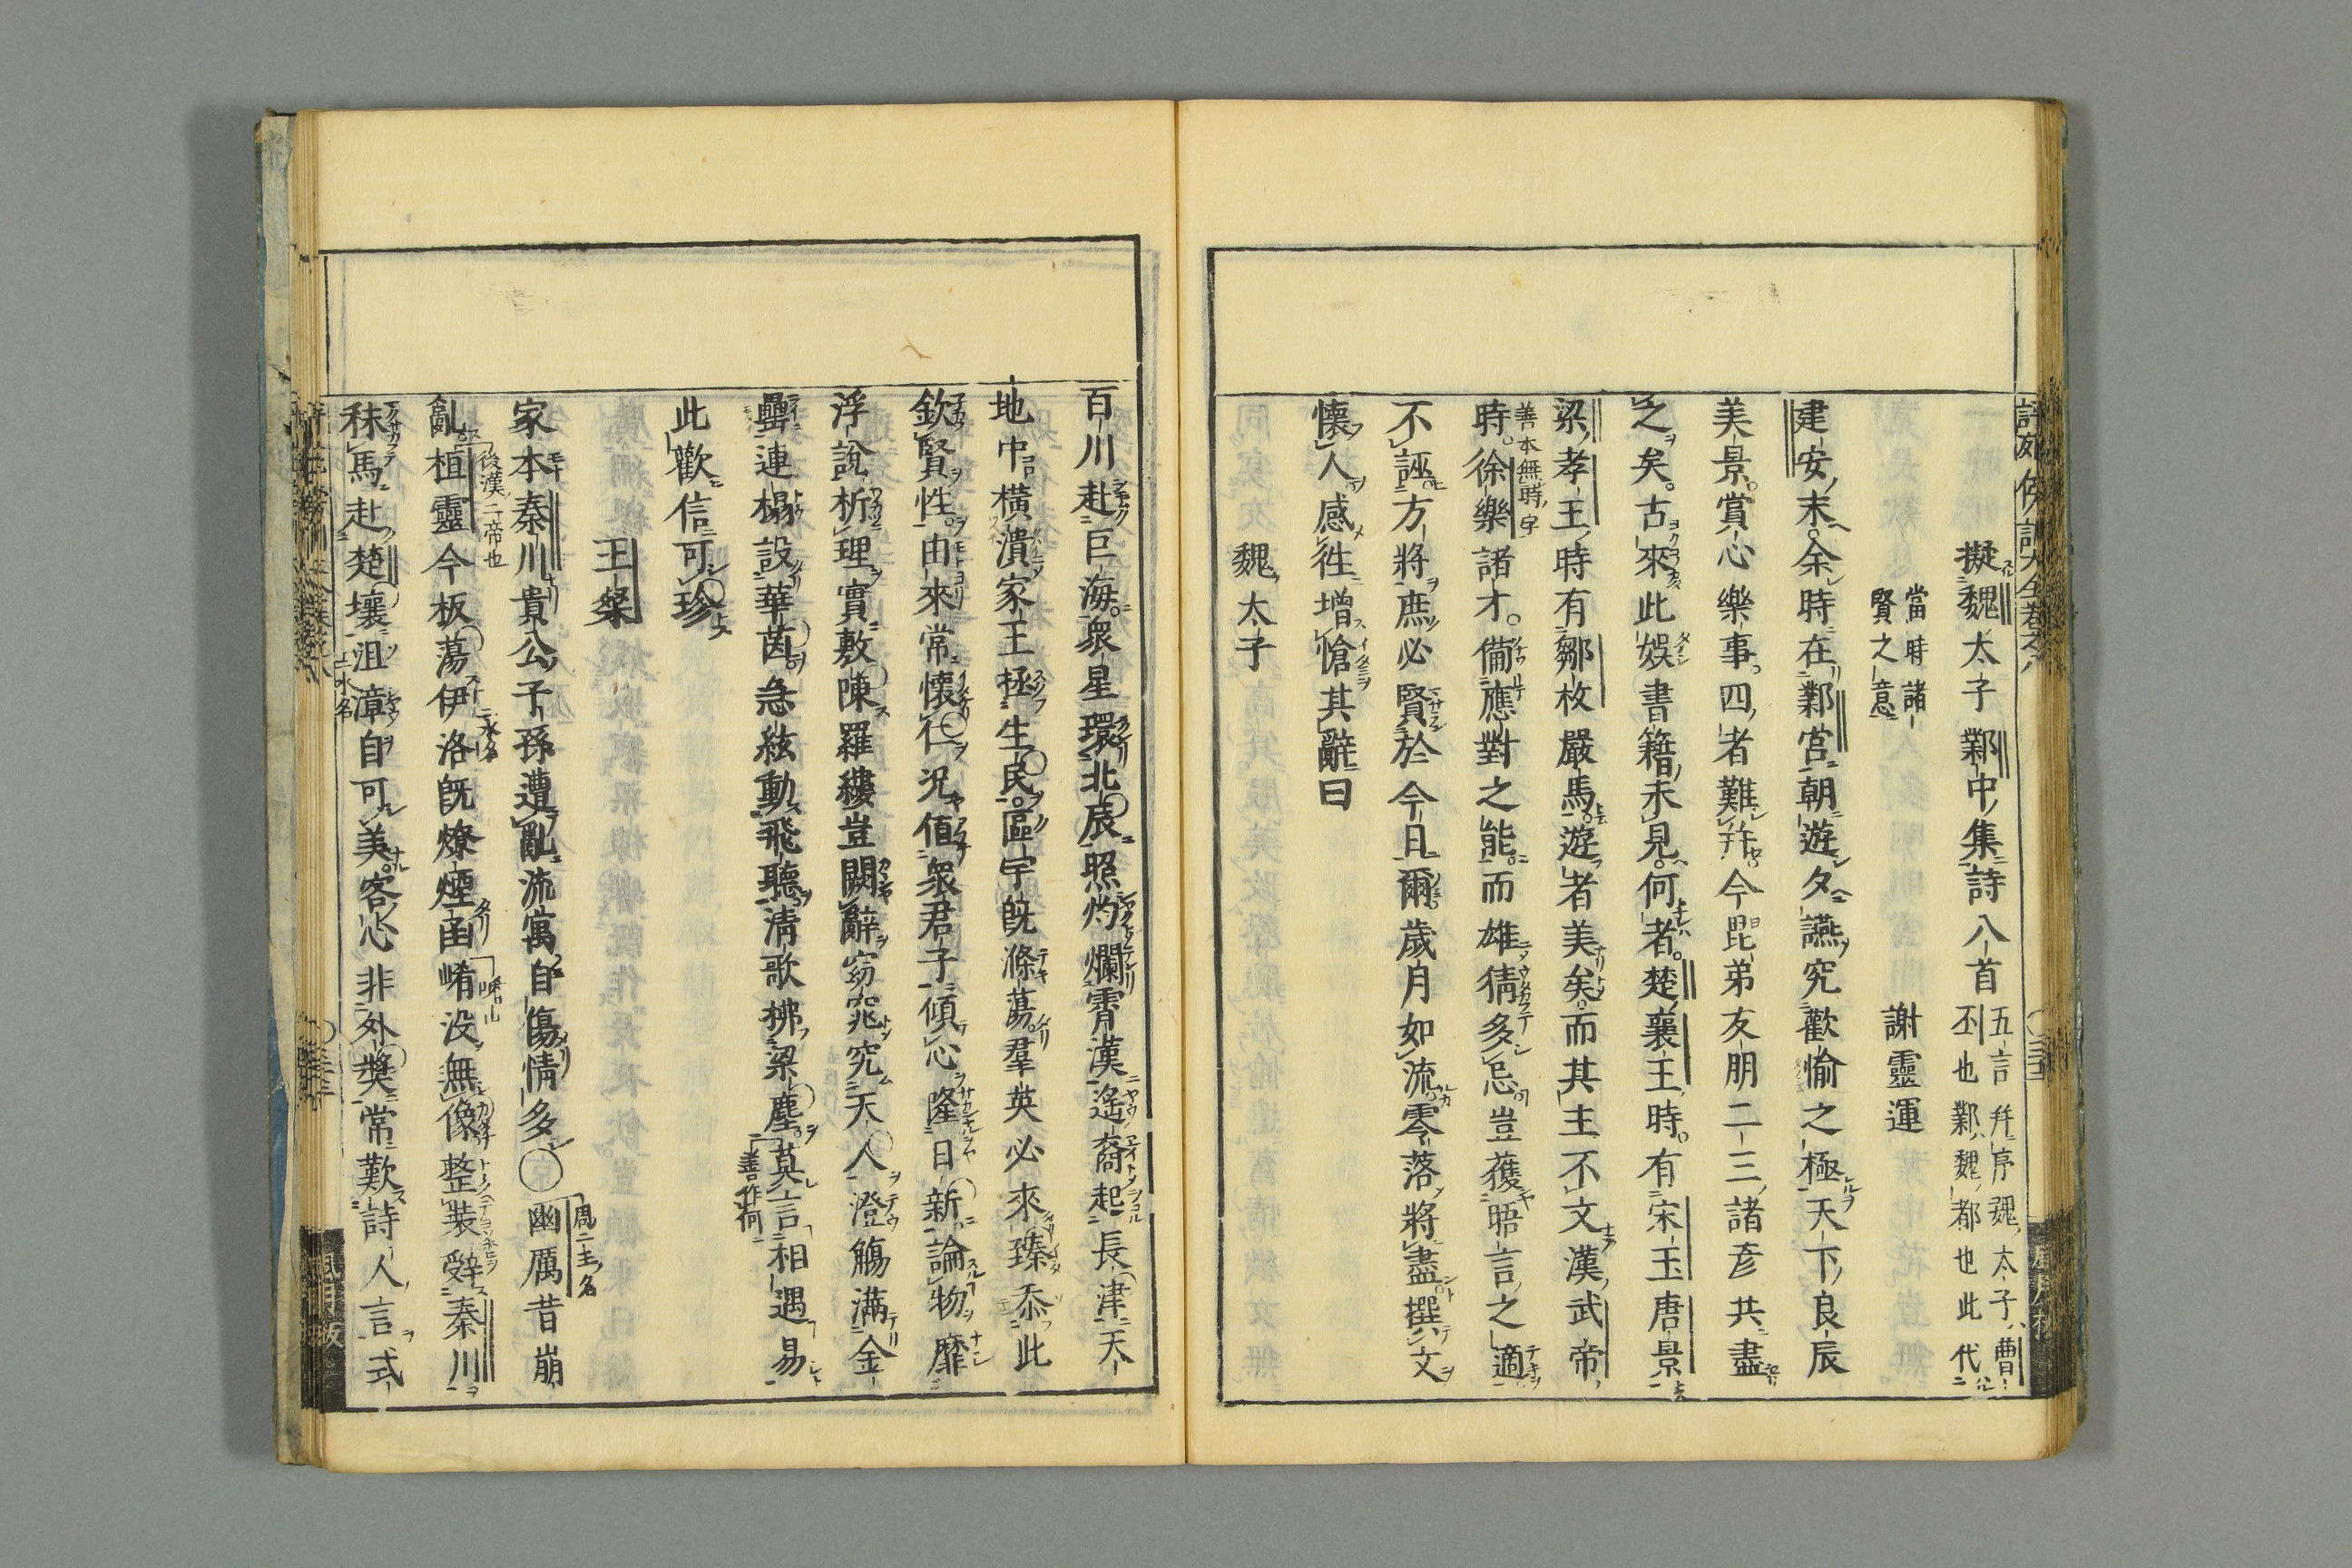 擬魏太子鄴中集詩八首
五言并序魏太子曹
丕也鄴魏都也此代
當時諸
賢之意
謝靈運
建安末余時在鄴宮朝遊夕讌究歡愉之極天下良辰
美景賞心樂事四者難并今昆弟友朋二三諸彦共盡
之矣古來此娯書籍未見何者楚襄王時有宋玉唐景
梁孝王時有鄒枚嚴馬遊者美矣而其主不文漢武帝
時徐樂諸才備應對之能而雄猜多忌豈獲晤言之適
善本無時字
不誣方將庶必賢於今日爾歲月如流零落將盡撰文
懷人感徃增愴其辭曰
魏太子
百川赴巨海衆星環北辰照灼爛霄漢遙裔起長津天
地中橫潰家王拯生民區宇既滌蕩羣英必來臻忝此
欽賢性由來常懷仁况値衆君子傾心隆日新論物靡
浮說析理實敷陳羅縷豈闕辭窈窕究天人澄觴滿金
罍連榻設華茵急絃動飛聽清歌拂梁塵莫言相遇易
善作何
此歡信可珍
王粲
幽厲昔崩
周二主名
亂桓靈今板蕩伊洛旣燎煙函崤没無像整裝辭秦川
後漢二帝也
二水名
崤山
家本秦川貴公子孫遭亂流寓自傷情多
秣馬赴楚壤沮漳自可美客心非外奬常歎詩人言式
二水名